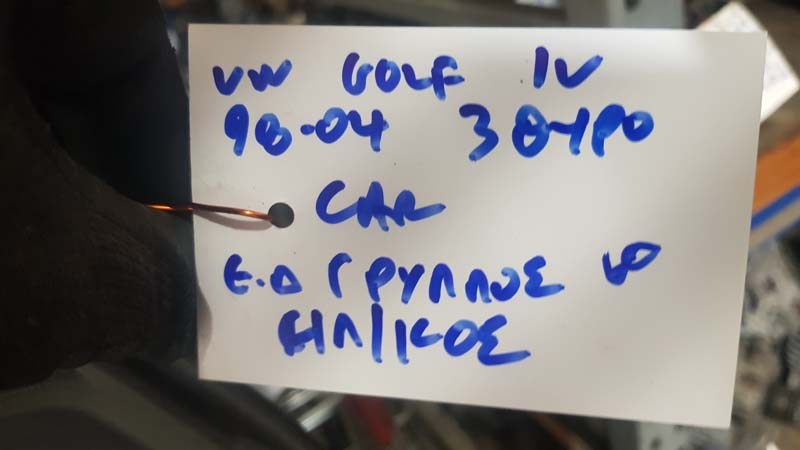 VW GOLF IV
98-04 3ΘΥΡΟ
CAR
Ε.Δ ΓΡΥΛΛΟΣ
ΗΛ/ΚΟΣ